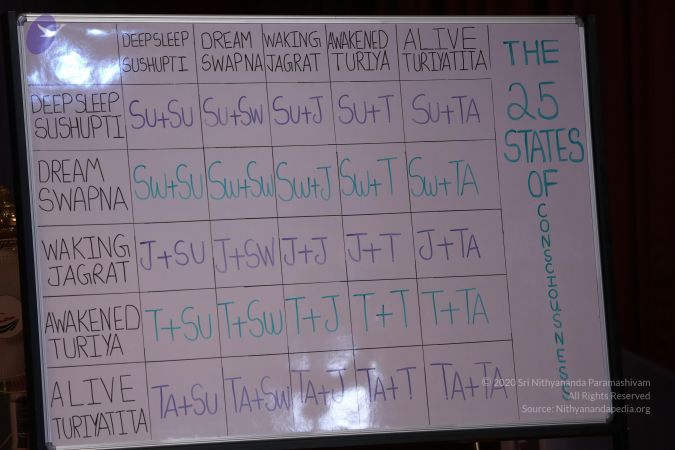 DEEPSLEEP SUSHUPTI
DREAM SWAPNA
WAKING JAGRAT
AWAKENED TURIYA
ALIVE TURIYATITA
DEEPSLEEP SUSHUPTI
SU+SU SU+SW SU+J SU+T SU+TA
DREAM SWAPNA
SW+SU SW+SW SW+J SW+T SW+TA
WAKING JAGRAT
J+SU J+SW J+J J+T J+TA
AWAKENED TURIYA
T+SU T+SW T+J T+T T+TA
ALIVE TURIYATITA
TA+SU TA+SW TA+J TA+T TA+TA
THE
25
STATES
OF
CONSCIOUSNESS
© 2020 Sri Nithyananda Paramashivam
All Rights Reserved
Source: Nithyanandapedia.org